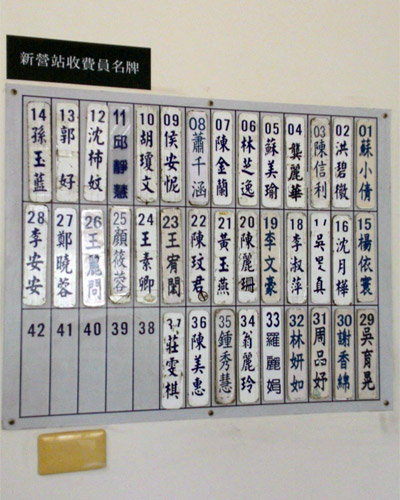 新營站收費員名牌
01 蘇小倩
02 洪碧徽
03 陳信利
04 龔麗華
05 蘇美瑜
06 林芝逸
07 陳金蘭
08 蕭千涵
09 侯安怩
10 胡瓊文
11 邱靜慧
12 沈柿妏
13 郭 好
14 孫玉藍
15 楊依寰
16 沈月樺
17 吳昊真
18 李淑萍
19 李文豪
20 陳麗珊
21 黃玉燕
22 陳玟君
23 王宥閎
24 王素卿
25 顏筱蓉
26 王麗問
27 鄭曉蓉
28 李安安
29 吳育晃
30 謝香綿
31 周品妤
32 林妍如
33 羅麗娟
34 翁麗玲
35 鍾秀慧
36 陳美惠
37 莊雯棋
38
39
40
41
42